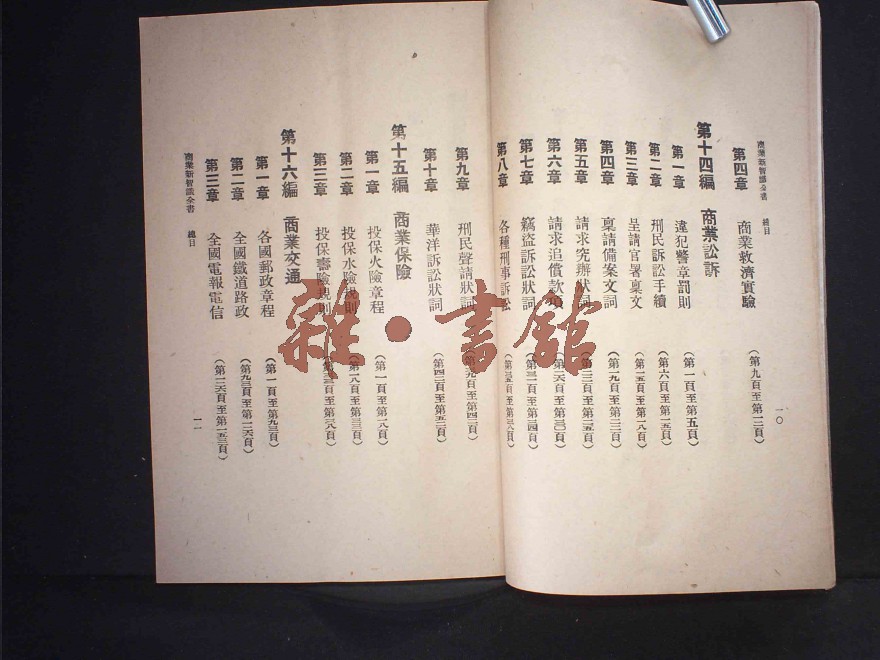 商業新智識全書　總目
一〇
第四章　商業救濟實驗　(第九頁至第一二頁)
第十四編　商業訟訴
第一章　違犯警章罰則　(第一頁至第五頁)
第二章　刑民訴訟手續　(第六頁至第一五頁)
第三章　呈請官署稟文　(第一五頁至第一八頁)
第四章　稟請備案文詞　(第一九頁至第二二頁)
第五章　請求究辦狀詞　(第二三頁至第二五頁)
第六章　請求追償款項　(第二六頁至第三〇頁)
第七章　竊盜訴訟狀詞　(第三一頁至第三四頁)
第八章　各種刑事訴訟　(第三五頁至第三八頁)
第九章　刑民聲請狀詞　(第三九頁至第四二頁)
第十章　華洋訴訟狀詞　(第四三頁至第五二頁)
第十五編　商業保險
第一章　投保火險章程　(第一頁至第一八頁)
第二章　投保水險規則　(第一八頁至第三三頁)
第三章　投保壽險規則
第十六編　商業交通
第一章　各國郵政章程　(第一頁至第九三頁)
第二章　全國鐵道路政　(第九三頁至第一二六頁)
第三章　全國電報電信　(第一二六頁至第一五三頁)
商業新智識全書　總目
一一
雜·書館